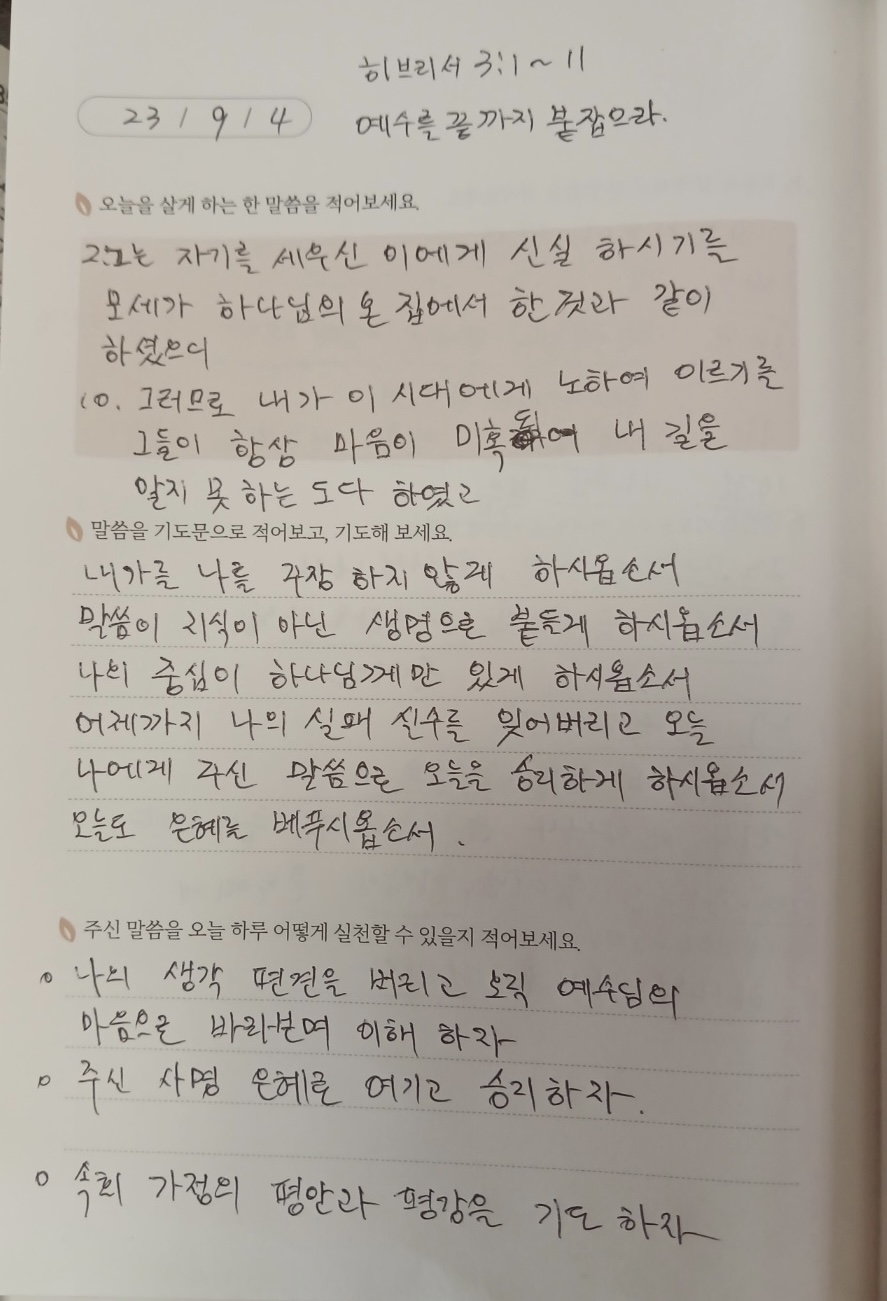 히브리서 3:1~11
23/9/4
예수를 끝까지 붙잡으라.
오늘을 살게 하는 한 말씀을 적어보세요.
2. 그는 자기를 세우신 이에게 신실 하시기를
모세가 하나님의 온 집에서 한 것과 같이
하셨으니
10. 그러므로 내가 이 시대에게 노하여 이르기를
그들이 항상 마음이 미혹되어 내 길을
알지 못 하는 도다 하였고
말씀을 기도문으로 적어보고, 기도해 보세요.
내가를 나를 주장 하지 않게 하시옵소서
말씀이 지식이 아닌 생명으로 붙들게 하시옵소서
나의 중심이 하나님께만 있게 하시옵소서
어제까지 나의 실패 실수를 잊어버리고 오늘
나에게 주신 말씀으로 오늘을 승리하게 하시옵소서
오늘도 은혜를 베푸시옵소서.
주신 말씀을 오늘 하루 어떻게 실천할 수 있을지 적어보세요.
o 나의 생각 편견을 버리고 오직 예수님의
마음으로 바라보며 이해 하자
o 주신 사명 은혜로 여기고 승리하자.
o 속회 가정의 평안과 평강을 기도 하자